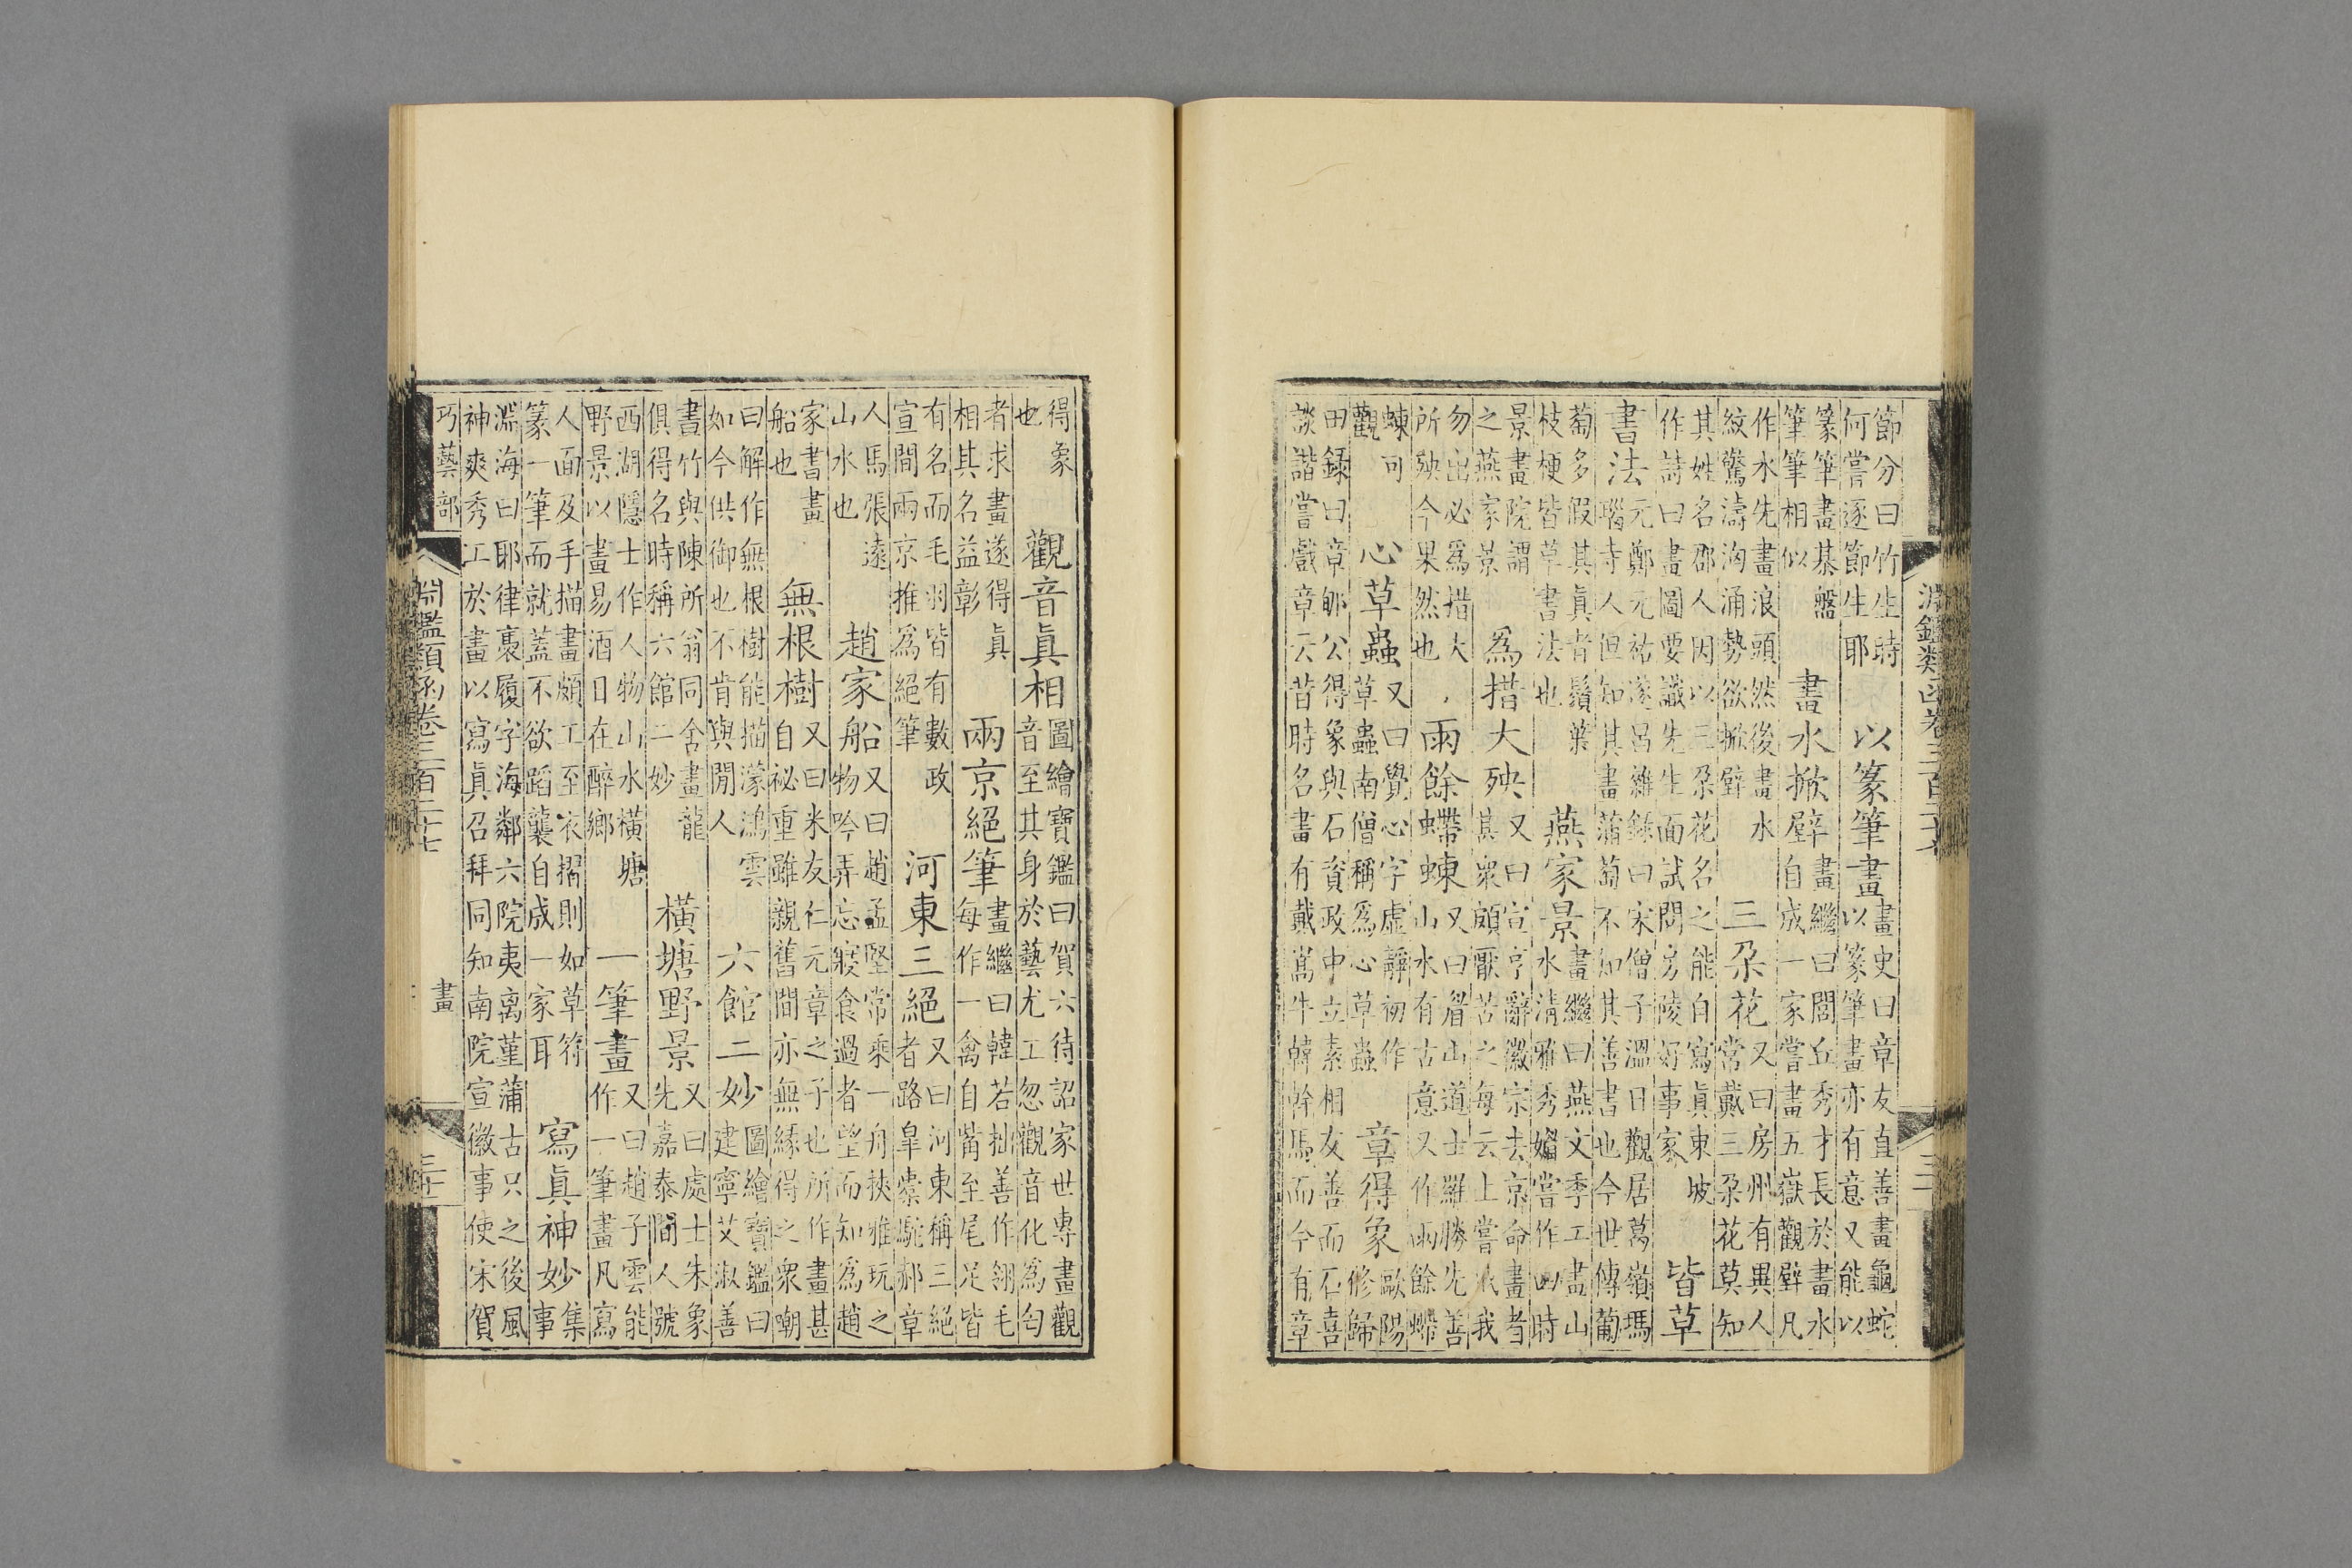 淵鑑類函卷三百二十七
節分曰竹生時
何嘗逐節生耶
以篆筆畫
畫史曰章友直善畫龜蛇
以篆筆畫亦有意又能以
篆筆畫棊盤
筆筆相似
畫水掀壁
畫繼曰閻丘秀才長於畫水
自成一家嘗畫五嶽觀壁凡
作水先畫浪頭然後畫水
紋驚濤洶涌勢欲掀壁
三朶花
又曰房州有異人
常戴三朶花莫知
其姓名郡人因以三朶花名之能自寫眞東坡
作詩曰畫圖要識先生面試問房陵好事家
皆草
書法
元鄭元祐遂昌雜錄曰宋僧子溫日觀居葛嶺瑪
瑙寺人但知其畫蒲萄不知其善書也今世傳葡
萄多假其眞者鬚葉
枝梗皆草書法也
燕家景
畫繼曰燕文季工畫山
水清雅秀媚嘗作四時
景畫院謂
之燕家景
爲措大殃
又曰宣亨辭徽宗去京命畫者
其衆頗厭苦之每云上嘗我
勿出必爲措大
所殃今果然也
雨餘螮蝀
又曰眉山道士羅勝先善
山水有古意又作雨餘螮
蝀可
觀
心草蟲
又曰覺心字虛靜初作
草蟲南僧稱爲心草蟲
章得象
歐陽
修歸
田錄曰章郇公得象與石資政中立素相友善而石喜
談諧嘗戲章云昔時名畫有戴嵩牛韓幹馬而今有章
得象
也
觀音眞相
圖繪寶鑑曰賀六待詔家世專畫觀
音至其身於藝尤工忽觀音化爲匄
者求畫遂得眞
相其名益彰
兩京絕筆
畫繼曰韓若拙善作翎毛
每作一禽自觜至尾足皆
有名而毛羽皆有數政
宣間兩京推爲絕筆
河東三絕
又曰河東稱三絕
者路皐橐駝郝章
人馬張遠
山水也
趙家船
又曰趙孟堅常乘一舟挾雅玩之
物吟弄忘寢食過者望而知爲趙
家書畫
船也
無根樹
又曰米友仁元章之子也所作畫甚
自祕重雖親舊間亦無緣得之衆嘲
曰解作無根樹能描濛鴻雲
如今供御也不肯與閒人
六館二妙
圖繪寶鑑曰
建寧艾淑善
畫竹與陳所翁同舍畫龍
俱得名時稱六館二妙
橫塘野景
又曰處士朱象
先嘉泰間人號
西湖隱士作人物山水橫塘
野景以畫易酒日在醉鄉
一筆畫
又曰趙子雲能
作一筆畫凡寫
人面及手描畫頗工至衣摺則如草符
篆一筆而就蓋不欲蹈襲自成一家耳
寫眞神妙
集
事
淵海曰耶律褭履字海鄰六院夷离堇蒲古只之後風
神爽秀工於畫以寫眞召拜同知南院宣徽事使宋賀
巧藝部
淵鑑類函卷三百二十七
畫